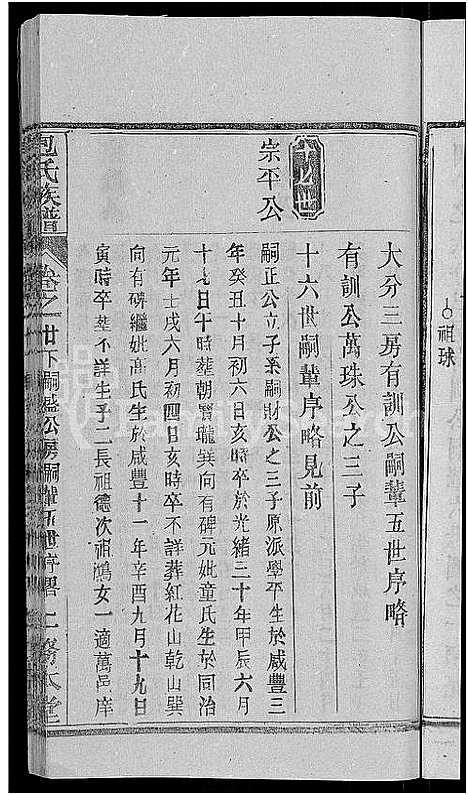 祖球
大分三房有訓公嗣輩五世序略
有訓公萬珠公之三子
十六世嗣輩序略見前
十七世
宗平公
嗣正公立子系嗣財公之三子原派學平生於咸豐三
年癸丑十月初六日亥時卒於光緒三十年甲辰六月
十七日午時葬朝賢瓏巽向有碑元妣童氏生於同治
元年壬戌六月初四日亥時卒不詳葬紅花山乾山巽
向有碑繼妣蕭氏生於咸豐十一年辛酉九月十九日
寅時卒葬不詳生子二長祖德次祖鴻女一適萬邑庠
包氏族譜 卷之廿下嗣盛公房嗣輩五世序略 二